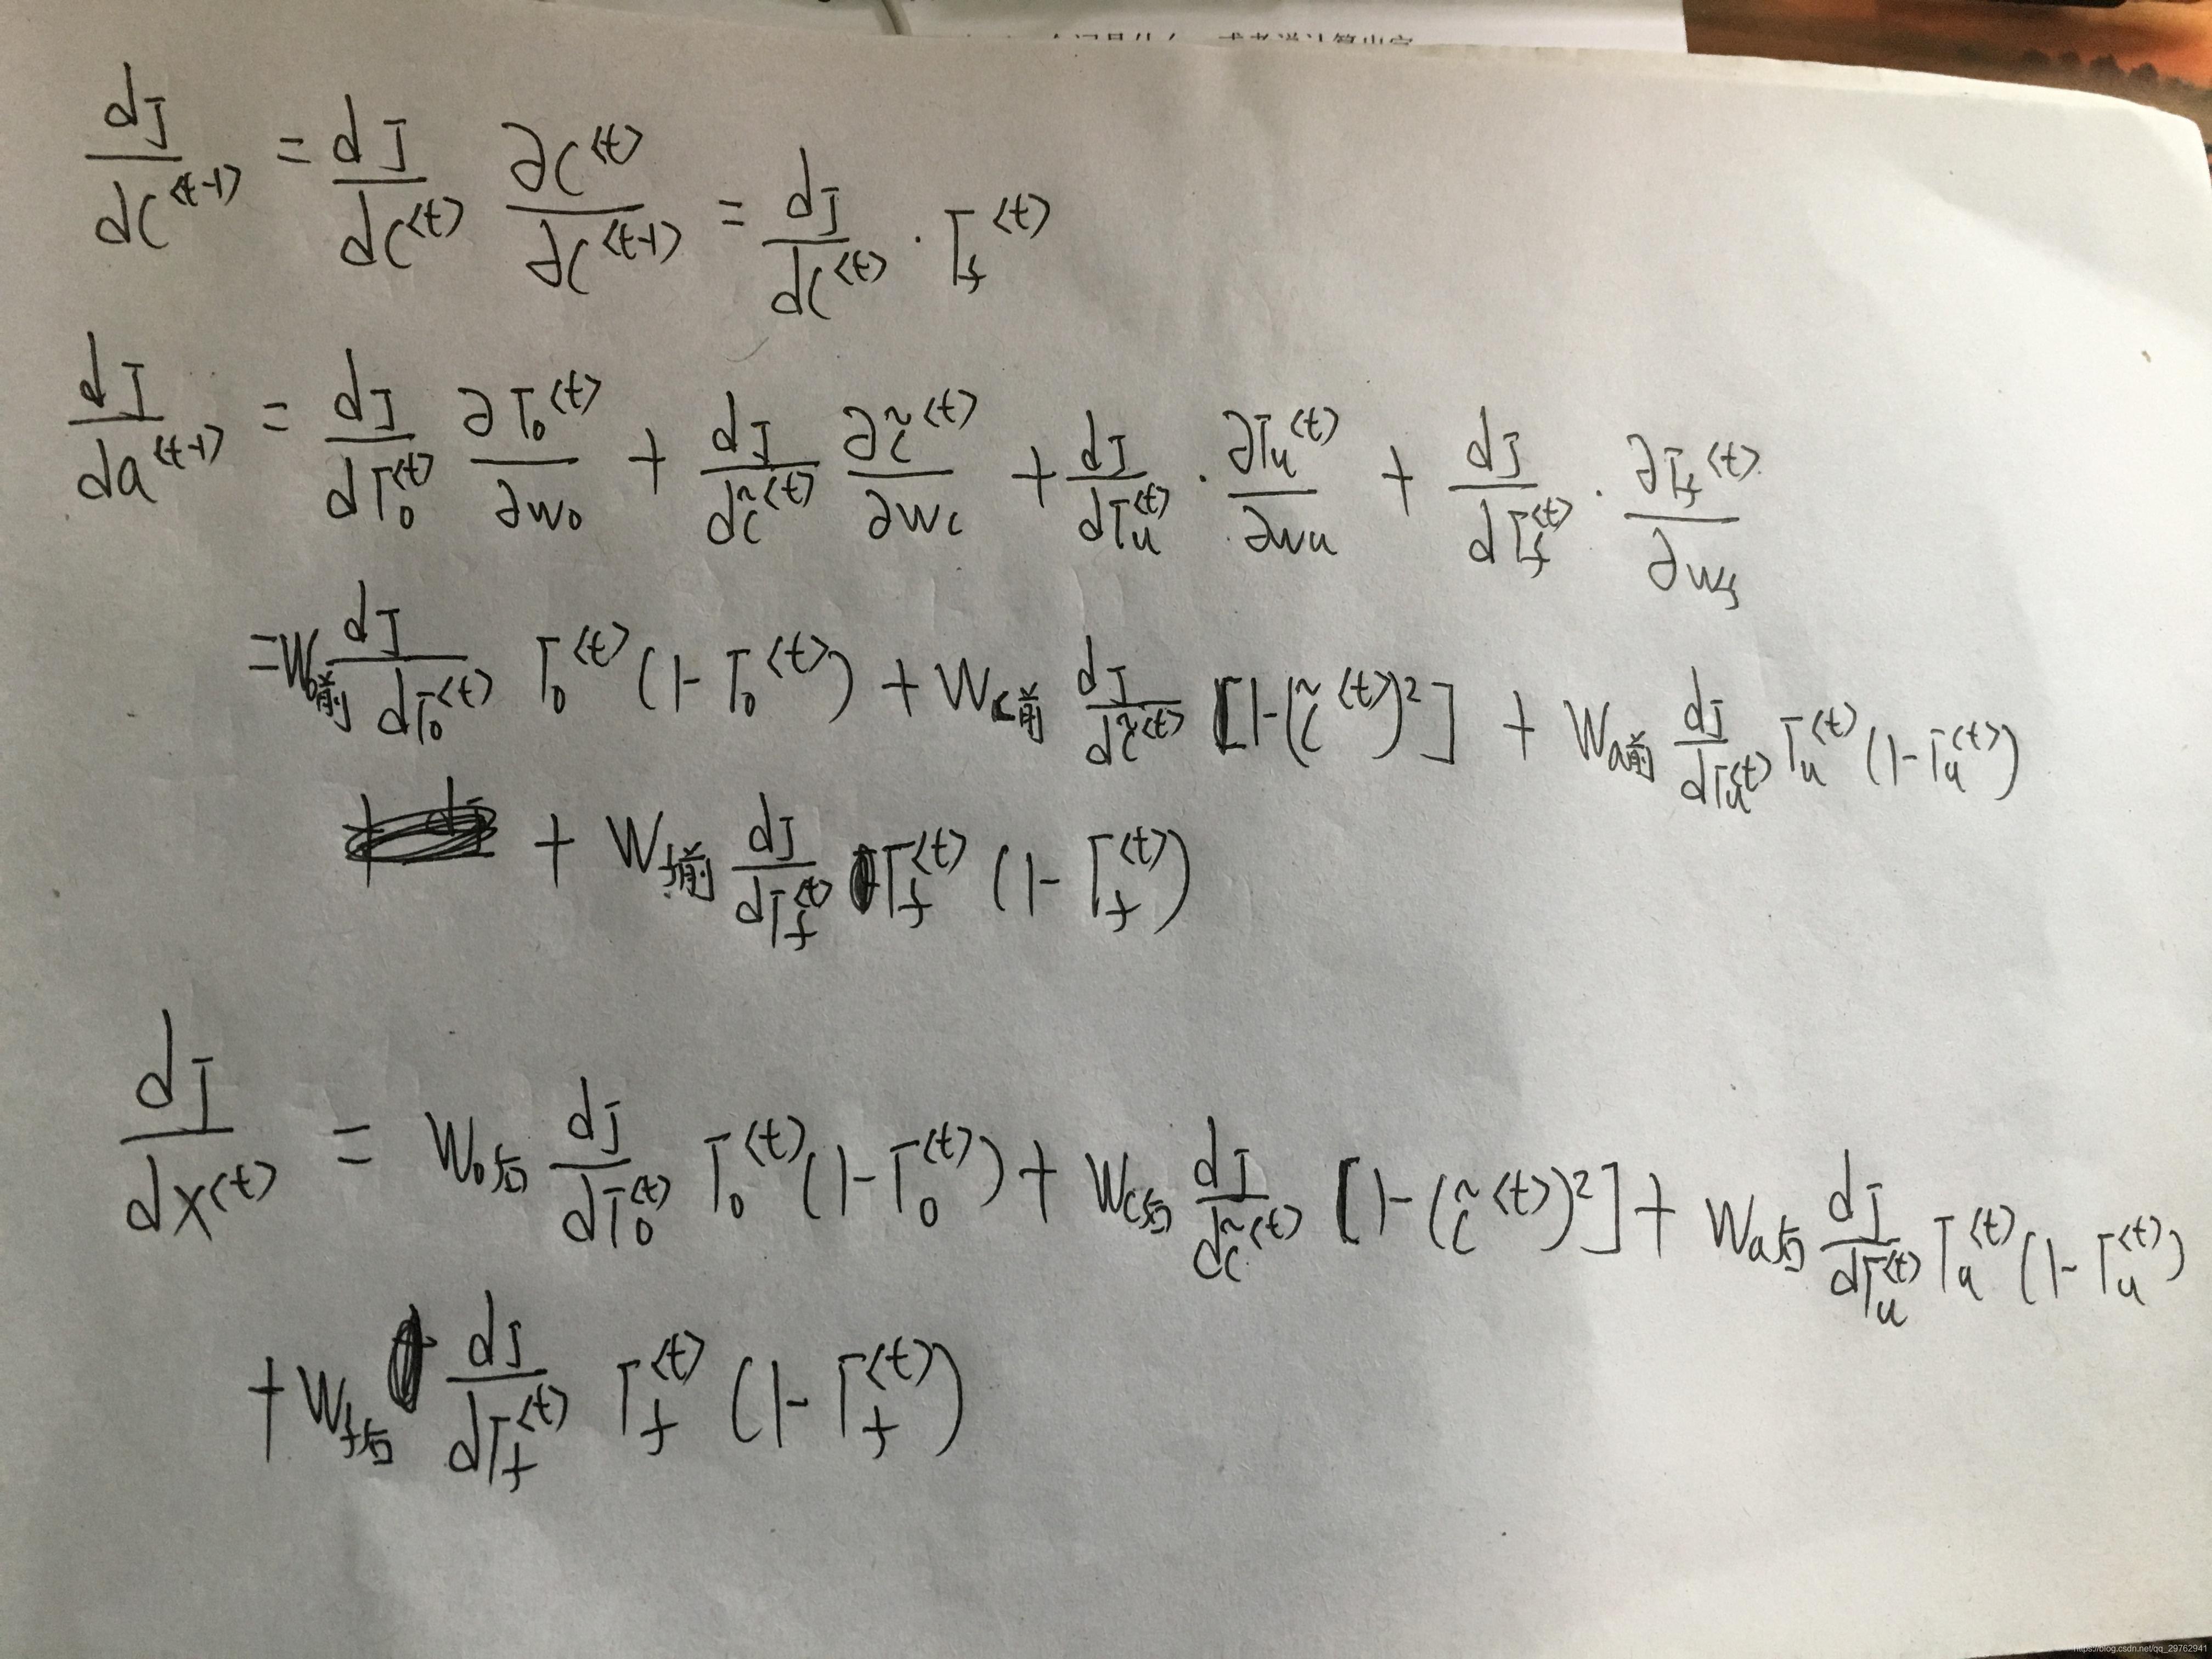 dJ/dc^<t-1> = dJ/dc^<t> ∂c^<t>/∂c^<t-1> = dJ/dc^<t> · Γf^<t>
dJ/da^<t-1> = dJ/dΓo^<t> ∂Γo^<t>/∂wo + dJ/dc̃^<t> ∂c̃^<t>/∂wc + dJ/dΓu^<t> · ∂Γu^<t>/∂wu + dJ/dΓf^<t> · ∂Γf^<t>/∂wf
= Wo前 dJ/dΓo^<t> Γo^<t> (1-Γo^<t>) + Wc前 dJ/dc̃^<t> [1-(c̃^<t>)²] + Wa前 dJ/dΓu^<t> Γu^<t> (1-Γu^<t>)
+ Wf前 dJ/dΓf^<t> Γf^<t> (1-Γf^<t>)
dJ/dx^<t> = Wo后 dJ/dΓo^<t> Γo^<t> (1-Γo^<t>) + Wc后 dJ/dc̃^<t> [1-(c̃^<t>)²] + Wa后 dJ/dΓu^<t> Γu^<t> (1-Γu^<t>)
+ Wf后 dJ/dΓf^<t> Γf^<t> (1-Γf^<t>)
https://blog.csdn.net/qq_29762941